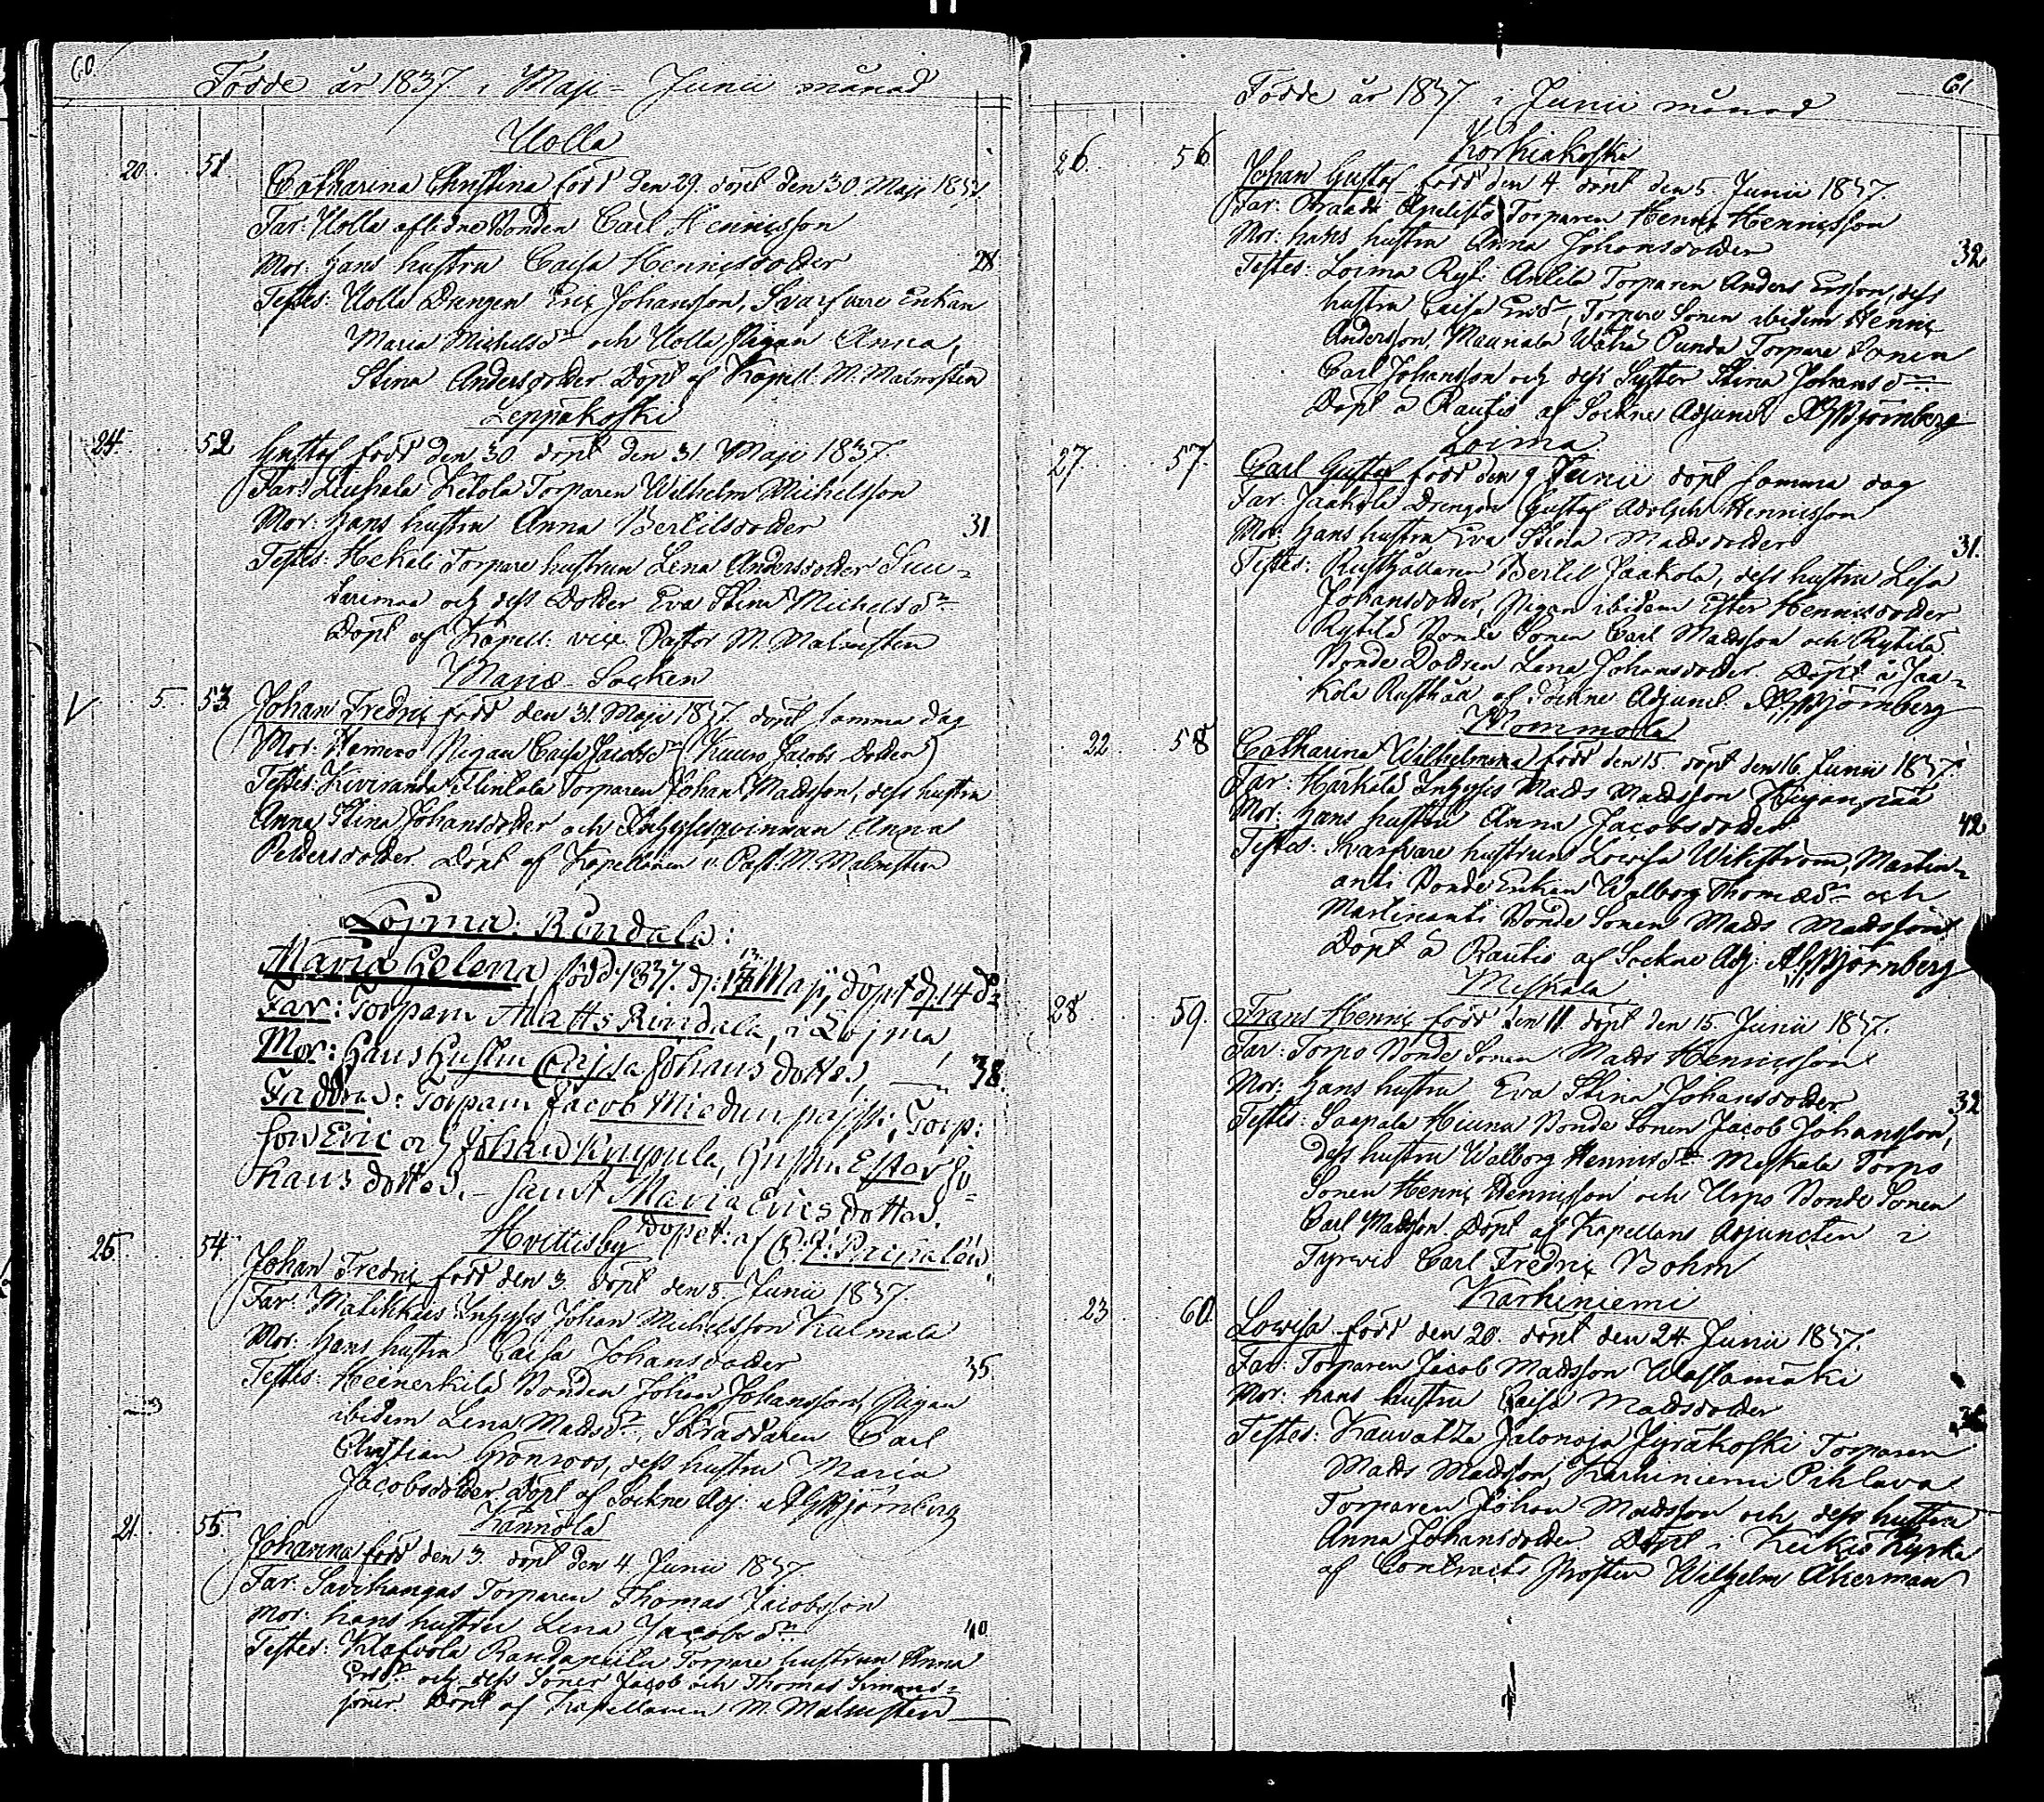 60.
Födde år 1837. i Maji = Junii månad
Uolla
20. 51 Catharina Christina född den 29. döpt den 30 Maji 1837.
Far: Uolla aflidne Bonden Carl Henricsson
Mor: hans hustru Caisa Henricsdotter 28
Testes: Uolla Drängen Eric Johansson, Svarfvare Enkan
Maria Michelsdr och Uolla Pigan Anna
Stina Andersdotter Döpt af Kapell: M. Malmsten
Leppäkoski
24. 52 Gustaf född den 30 döpt den 31. Maji 1837.
Far: Ketola Torparen Wilhelm Michelsson
Mor: hans hustru Anna Bertilsdotter 31
Testes: Hekali Torpare hustrun Lena Andersdotter Suu-
tarimaa och dess Dotter Eva Stina Michelsdr
Döpt af Kapell: vice Pastor M. Malmsten
Mariæ Socken
V 5. 53 Johan Fredric född den 31. Maji 1837. döpt samma dag
Mor: Heinero Pigan Caisa Jacobsdr (Kuuro Jacobs Dotter)
Testes: Kiviranda Torparen Johan Madsson, dess hustru
Anna Stina Johansdotter och Inhyseskvinnan Anna
Pettersdotter Döpt af Kapellanen v. Past. M. Malmsten
Lojma. Rindala:
Maria Helena, född 1837. d: 13 Maji, döpt d. 14 do
Far: Torparn Matts Rindala, i Lojma
Mor: hans hustru Cajsa Johans dotter 38.
Faddrar: Torparn Jacob , Torp:
son Eric och Johan Knupula, hustru Ester Jo-
hans dotter. – samt Maria Erics dotter.
Döpet: af
Hvittisby
25. 54. Johan Fredric född den 3. döpt den 5. Junii 1837
Far: Inhyses Johan Michelsson
Mor: hans hustru Caisa Johansdotter 35
Testes: Heinerkilä Bonden Johan Johansson, Pigan
ibidem Lena Madsdr, Skräddaren Carl
Christian Grönroos, dess hustru Maria
Jacobsdotter Döpt af Sockne Adj: Björnberg
Kännölä
21. 55. Johanna född den 3. döpt den 4. Junii 1837.
Far: Savikangas Torparen Thomas Jacobsson
Mor: hans hustru Lena Jacobsdr 40
Testes: Torpare hustrun Anna
Ericsdr och dess Söner Jacob och Thomas Simons-
söner. Döpt af Kapellanen M. Malmsten
61
Födde år 1837 i Junii månad
Korkiakoski
26. 56 Johan Gustaf född den 4. döpt den 5. Junii 1837.
Far: Torparen Henric Henricsson
Mor: hans hustru Anna Johansdotter 32
Testes: Loima Anttila Torparen Anders Ersson, dess
hustru Caisa Ersdr, Torpare Sonen ibidem Henric
Andersson, Mauriala Torpare Sonen
Carl Johansson och dess Syster Stina Johansdr
Döpt å Rautio af Sockne Adjunct Björnberg
Loima
27. 57. Carl Gustaf född den 9 Junii döpt samma dag
Far: Jaakola Drengen Gustaf Adolph Henricsson
Mor: hans hustru Eva Stina Madsdotter 31.
Testes: Rusthållaren Bertil Jaakola, dess hustru Lisa
Johansdotter, Pigan ibidem Ester Henricsdotter
Rytilä Bonde Sonen Carl Madsson och Rytilä
Bonde Dottren Lena Johansdotter. Döpt å Jaa-
kola Rusthåll af Sockne Adjunct. Björnberg
Mommola
22 58 Catharina Wilhelmina född den 15. döpt den 16. Junii 1837.
Far: Härkälä Inhyses Mads Madsson
Mor: hans hustru Anna Jacobsdotter 42
Testes: Svarfvare hustrun Lowisa Wikström, Martin-
anti Bonde Enkan Walborg Thomasdr och
Martinanti Bonde Sonen Mads Madsson
Döpt å Rautio af Sockne Adj: Björnberg
Meskala
28 59. Frans Henric född den 11. döpt den 15. Junii 1837.
Far: Torpo Bonde Sonen Mads Henricsson
Mor: hans hustru Eva Stina Johansdotter 32
Testes: Saapala Bonde Sonen Jacob Johansson,
dess hustru Walborg Henricsdr Meskala Torpo
Sonen Henric Henricsson och Urpo Bonde Sonen
Carl Madsson. Döpt af Kapellans Adjuncten i
Tyrwis Carl Fredric Bohm
Karhiniemi
23 60 Lowisa född den 20. döpt den 24 Junii 1837.
Far: Torparen Jacob Madsson Wastamäki
Mor: hans hustru Caisa Madsdotter 36
Testes: Kauvatza Jalonoja Jyräkoski Torparen
Mads Madsson, Karhiniemi Pihlava
Torparen Johan Madsson och dess hustru
Anna Johansdotter Döpt i Keikis Kyrka
af Contracts Prosten Wilhelm Åkerman